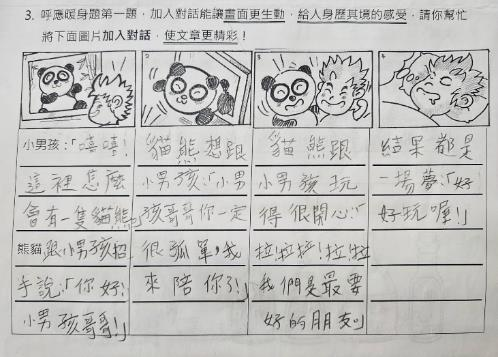 3. 呼應暖身題第一題，加入對話能讓畫面更生動，給人身歷其境的感受，請你幫忙
將下面圖片加入對話，使文章更精彩！
1
小男孩：「嘻嘻！
這裡怎麼
會有一隻貓熊」
熊貓 跟小男孩招
手說：「你好！
小男孩哥哥！」
2
貓熊想跟
小男孩：「小男
孩哥哥你一定
很孤單，我
來陪你了！」
3
貓熊跟
小男孩玩
得很開心：「
拉！拉！拉！拉！拉
我們是最要
好的朋友」
4
結果都是
一場夢：「好
好玩喔！」